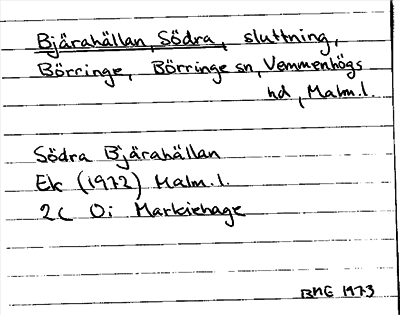 Bjärahällan, Södra, sluttning,
Börringe, Börringe sn, Vemmenhögs
hd, Malm.l.
Södra Bjärahällan
Ek (1972) Malm.l.
2C Oi Markiehage
BME 1973